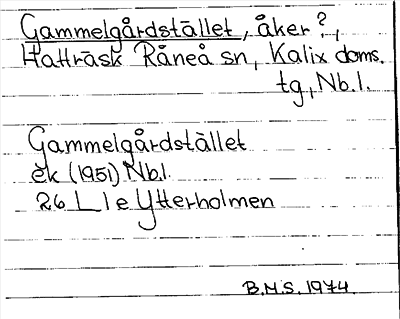 Gammelgårdstället, åker?,
Hatträsk Råneå sn, Kalix doms.
tg, Nb.l.
Gammelgårdstället
ek (1951) Nb.l.
26 L 1 e Ytterholmen
B.M.S. 1974